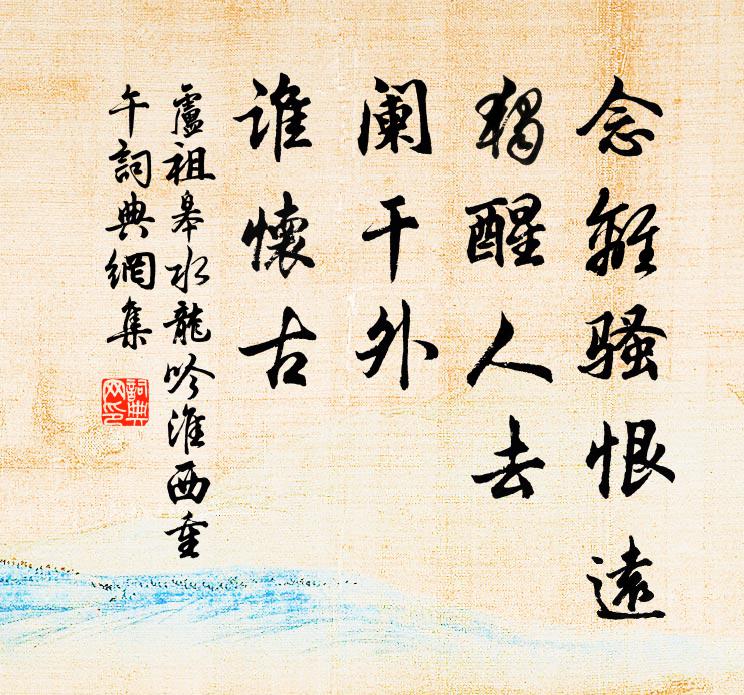 念離騷恨遠
獨醒人去
闌干外
誰懷古
盧祖皋水龍吟淮西重
午詞典網集
詞典
网印